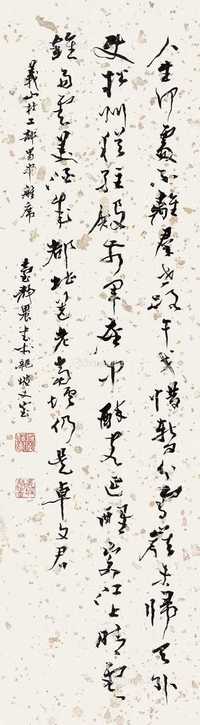 人生何處不離群世路干戈惜暫分雪嶺未歸天外
使松州猶駐殿前軍座中醉客延醒客江上晴雲
雜雨雲美酒成都堪送老當壚仍是卓文君
義山杜工部蜀中離席
臺靜農書於龍坡丈室